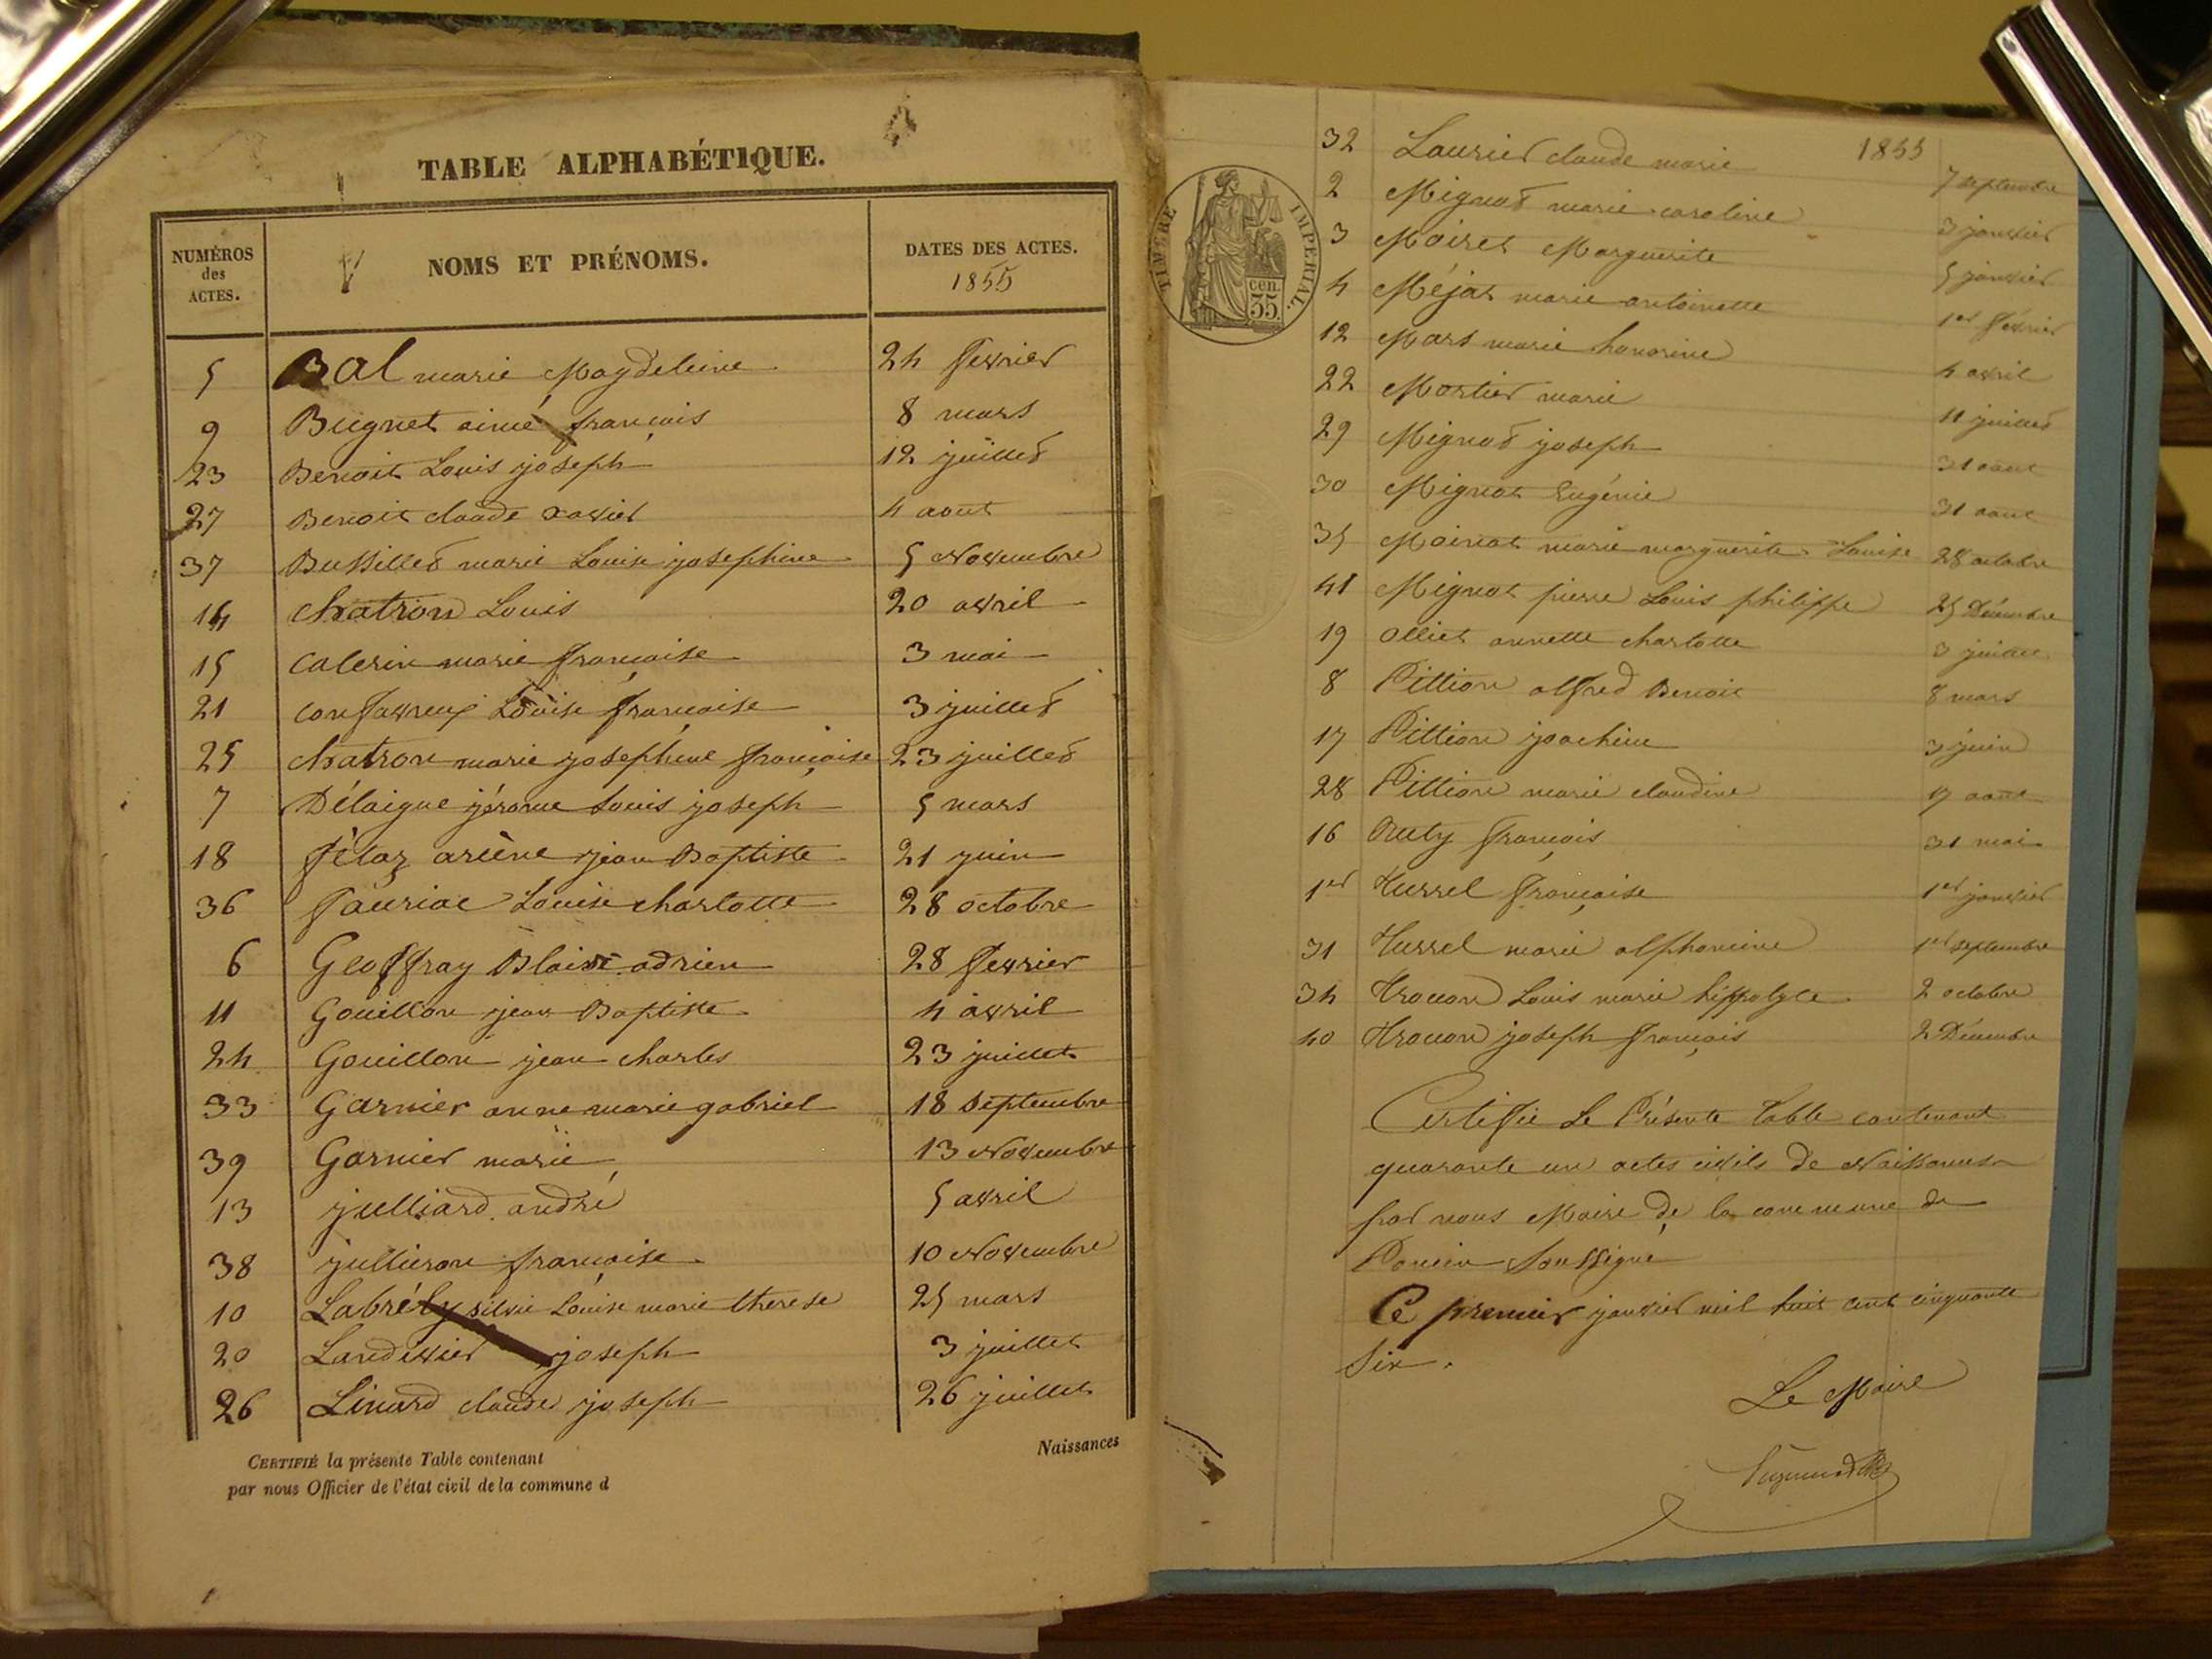 TABLE ALPHABÉTIQUE.
NUMÉROS des ACTES.
NOMS ET PRÉNOMS.
DATES DES ACTES.
1855
5 Bal marie Magdeleine 24 fevrier
9 Bugnet aimé françois 8 mars
23 Benoit Louis joseph 12 juillet
27 Benoit claude xavier 4 aout
37 Bussillet marie Louise josephine 5 Novembre
14 Chatron Louis 20 avril
15 Calerin marie françoise 3 mai
21 Confavreux Louise françoise 3 juillet
25 Chatron marie josephine françoise 23 juillet
7 Délaigue jérome Louis joseph 5 mars
18 fétaz arsène jean Baptiste 21 juin
36 fauriac Louise charlotte 28 octobre
6 Geoffray Blaise adrien 28 fevrier
11 Gouillon jean Baptiste 4 avril
24 Gouillon jean charles 23 juillet
33 Garnier anne marie gabriel 18 septembre
39 Garnier marie 13 Novembre
13 julliard andré 5 avril
38 jullieron françoise 10 Novembre
10 Labrély silvie Louise marie therese 25 mars
20 Landivier joseph 3 juillet
26 Linard claude joseph 26 juillet
CERTIFIÉ la présente Table contenant
Naissances
par nous Officier de l'état civil de la commune d
1855
32 Laurier claude marie 7 septembre
TIMBRE IMPERIAL.
cen. 35.
2 Mignot marie caroline 3 janvier
3 Moiret Marguerite 5 janvier
4 Méjat marie antoinette 1er fevrier
12 Mars marie honorine 4 avril
22 Mortier marie 11 juillet
29 Mignot joseph 31 aout
30 Mignot Eugénie 31 aout
35 Moinat marie marguerite Louise 28 octobre
41 Mignot pierre Louis philippe 25 Décembre
19 Olliet annette charlotte 3 juillet
8 Pittion alfred Benoit 8 mars
17 Pittion joachim 3 juin
28 Pittion marie claudine 17 aout
16 Ruty françois 31 mai
1er Turrel françoise 1er janvier
31 Turrel marie alphonsine 1er septembre
34 Trouon Louis marie hippolyte 2 octobre
40 Trouon joseph françois 2 Décembre
Certifie le Présente table contenant
quarante un actes civils de Naissances
par nous Maire de la commune de
Poncin Soussigné
Ce premier janvier mil huit cent cinquante
six.
Le Maire